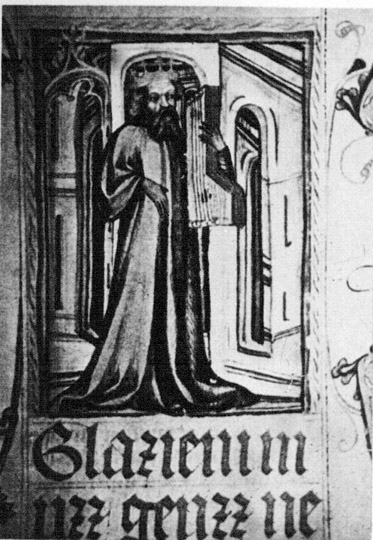 Blazieni m
uzz genzz ne